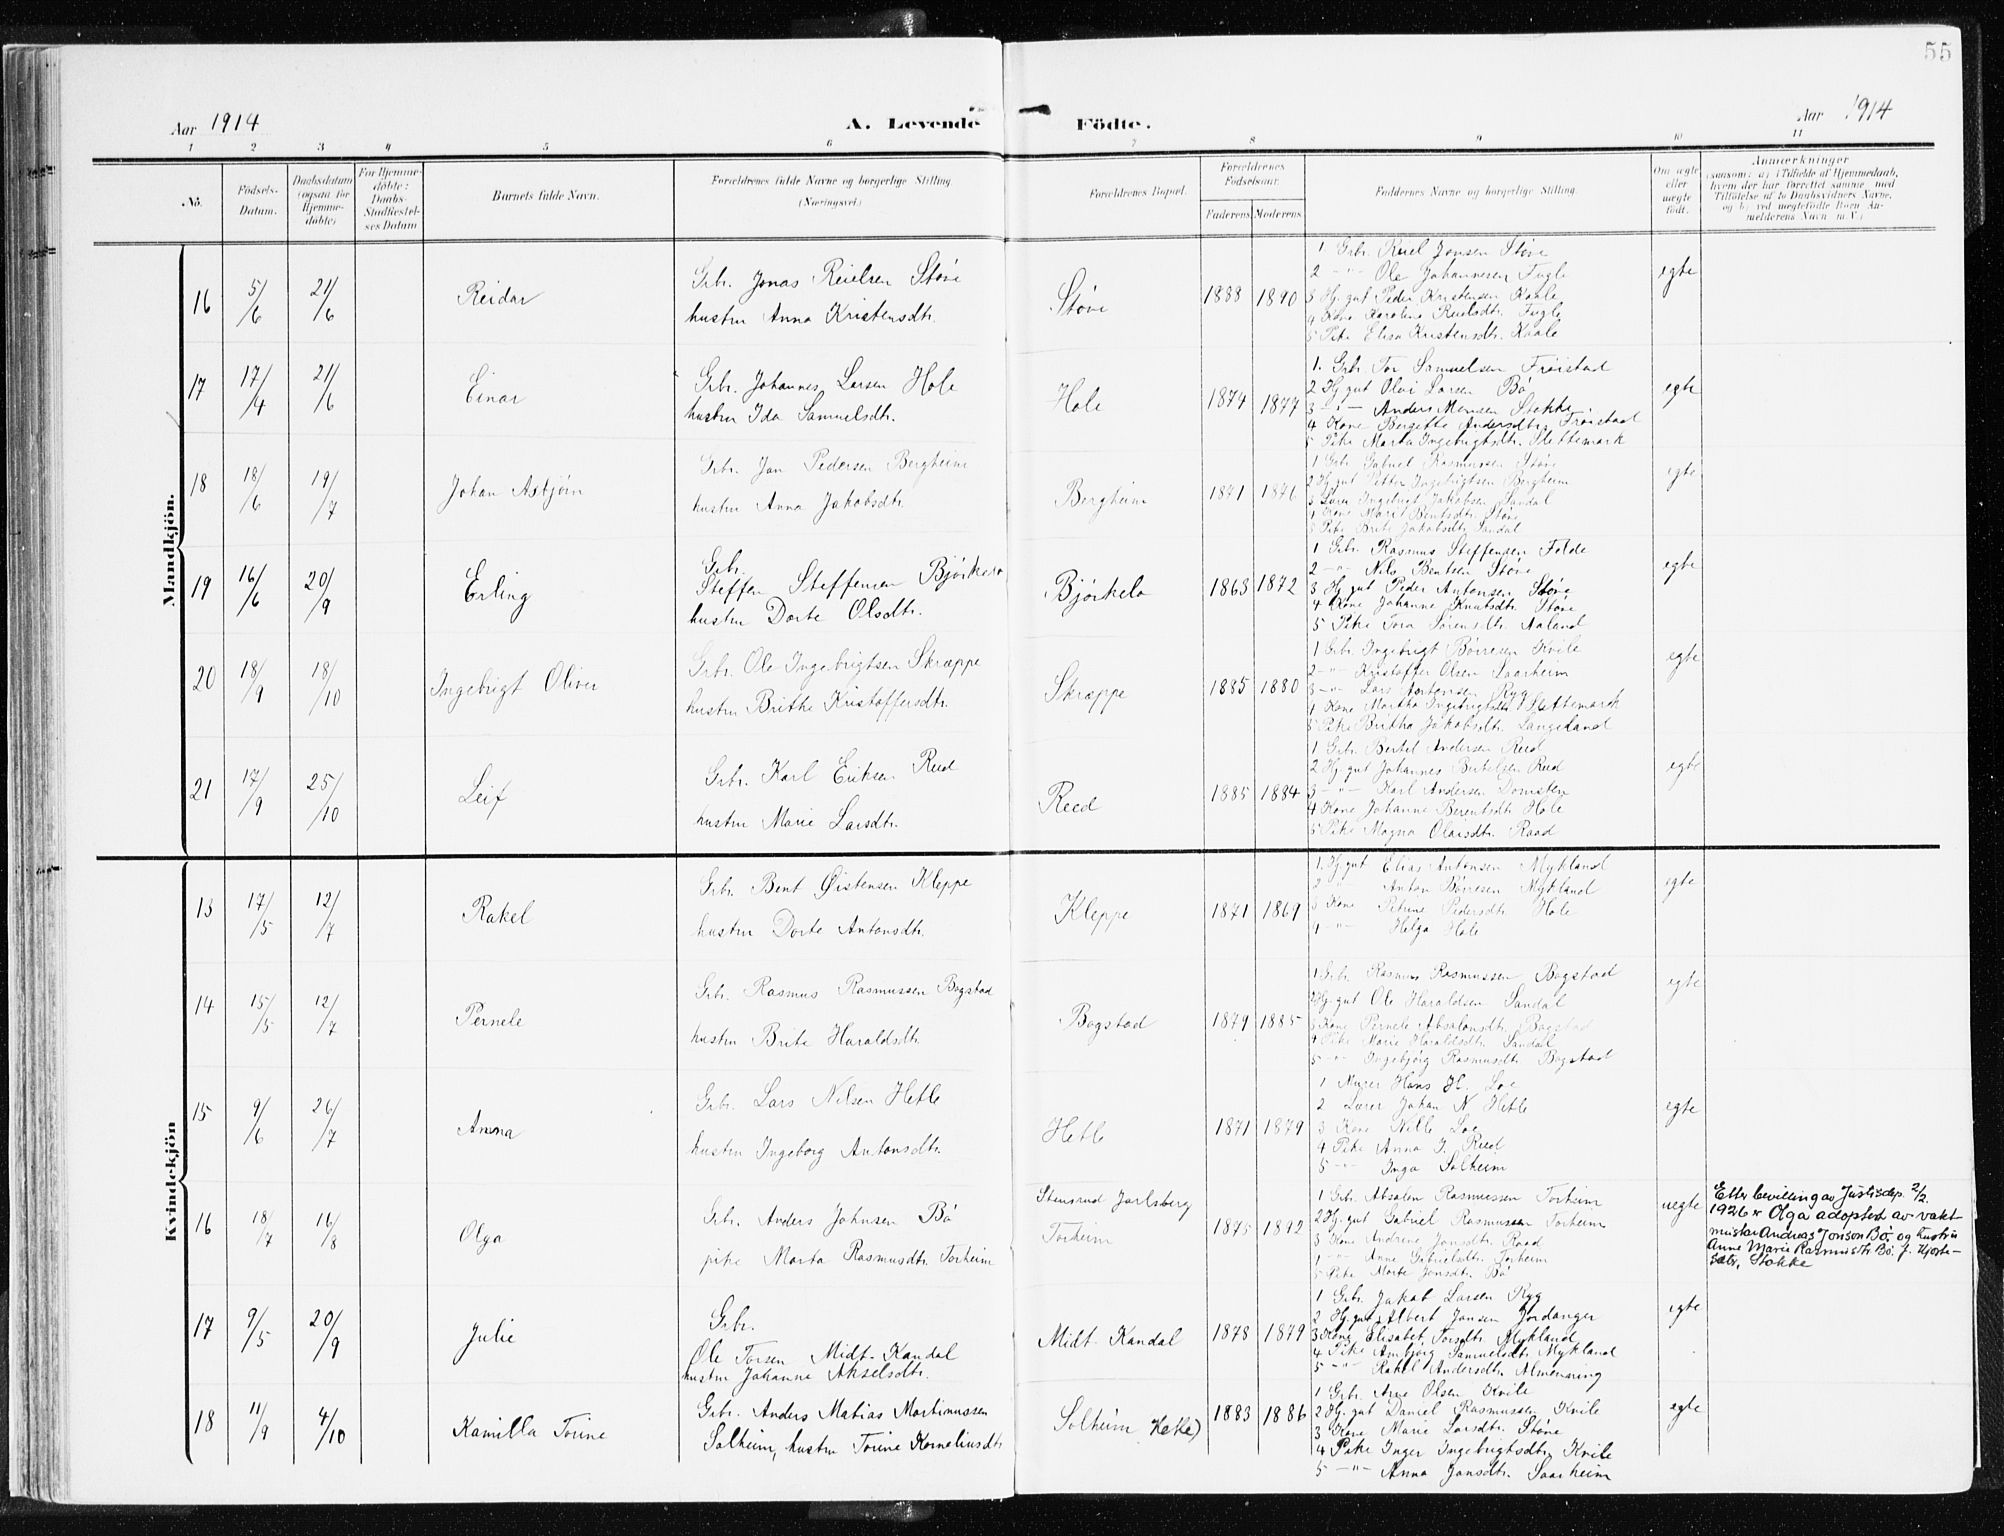 55
Aar 1914
A. Levende Födte.
Aar 1914
1 2 3 4 5 6 7 8 9 10 11
No.
Födsels-Datum.
Daabsdatum (ogsaa for Hjemmedöbte)
For Hjemmedöbte: Daabs-Stadfæstelses Datum
Barnets fulde Navn.
Forældrenes fulde Navne og borgerlige Stilling (Næringsvei.)
Forældrenes Bopæl.
Forældrenes Födselsaar.
Faderens Moderens
Faddernes Navne og borgerlige Stilling.
Om ægte eller uægte födt.
Anmærkninger
(saasom: a) i Tilfælde af Hjemmedaab,
hvem der har forrettet samme med
Tilföielse af to Daabsvidners Navne,
og b) ved uægtefödte Börn Anmelderens Navn m. V.)
Mandkjön.
16 5/6 21/6 Reidar
Grbr. Jonas Reielsen Støve
hustru Anna Kristensdtr.
Støve 1888 1890
1. Grbr. Reiel Jonsen Støve
2 -"- Ole Johannesen Fugle
3 Hj. gut Peder Kristensen Kaale
4 Kone Karolina Reielsdtr. Fugle
5 Pike Elisa Kristensdtr. Kaale
egte
17 17/4 21/6 Einar
Grbr. Johannes Larsen Hole
hustru Ida Samuelsdtr.
Hole 1874 1877
1. Grbr. Tor Samuelsen Frøistad
2 Hj. gut Olai Larsen Bø
3 -"- Anders Monsen Stokke
4 Kone Bergette Andersdtr. Frøistad
5 Pike Marta Ingebrigtsdtr. Slettemark
egte
18 18/6 19/7 Johan Asbjørn
Grbr. Jon Pedersen Bergheim
hustru Anna Jakobsdtr.
Bergheim 1871 1876
1 Grbr. Gabriel Rasmussen Støve
2 Hj. gut Petter Ingebrigtsen Bergheim
3 Lærer Ingebrigt Jakobsen Sandal
4 Kone Marie Bentsdtr. Støve
5 Pike Brite Jakobsdtr. Sandal
egte
19 16/6 20/9 Erling
Grbr.
Steffen Steffensen Bjørkelo
hustru Dorte Olsdtr.
Bjørkelo 1863 1872
1 Grbr. Rasmus Steffensen Felde
2 -"- Nils Bentsen Støve
3 Hj. gut Peder Antonsen Støve
4 Kone Johanne Knutsdtr. Støve
5 Pike Tora Sørensdtr. Aaland
egte
20 18/9 18/10 Ingebrigt Oliver
Grbr. Ole Ingebrigtsen Skræppe
hustru Brithe Kristoffersdtr.
Skræppe 1885 1880
1 Grbr. Ingebrigt Børresen Kvile
2 -"- Kristoffer Olsen Saarheim
3 -"- Lars Mortensen Ryg
4 Kone Martha Ingebrigtsdtr. Slettemark
5 Pike Britha Jakobsdtr. Langeland
egte
21 17/9 25/10 Leif
Grbr. Karl Eriksen Reed
hustru Marie Larsdtr.
Reed 1885 1884
1 Grbr. Bertel Andersen Reed
2 Hj. gut Johannes Bertelsen Reed
3 -"- Karl Andersen Domsten
4 Kone Johanne Berentsdtr. Hole
5 Pike Magna Olaisdtr. Raad
egte
Kvindekjön
13 17/5 12/7 Rakel
Grbr. Bent Øistensen Kleppe
hustru Dorte Antonsdtr.
Kleppe 1871 1869
1. Hj. gut Elias Antonsen Mykland
2 -"- Anton Børresen Mykland
3 Kone Petrine Pedersdtr. Hole
4 -"- Helga Hole
egte
14 15/5 12/7 Pernele
Grbr. Rasmus Rasmussen Bogstad
hustru Brite Haraldsdtr.
Bogstad 1879 1885
1 Grbr. Rasmus Rasmussen Bogstad
2 Hj. gut Ole Haraldsen Sandal
3 Kone Pernele Absalonsdtr. Bogstad
4 Pike Marie Haraldsdtr. Sandal
5 -"- Ingebjørg Rasmusdtr. Bogstad
egte
15 9/6 26/7 Anna
Grbr. Lars Nilsen Hetle
hustru Ingeborg Antonsdtr.
Hetle 1871 1879
1 Murer Hans H. Loe
2 Lærer Johan N. Hetle
3 Kone Nille Loe
4 Pike Anna J. Reed
5 -"- Inga Solheim
egte
16 18/7 16/8 Olga
Grbr. Anders Johnsen Bø
pike Marta Rasmusdtr. Torheim
Stensrud Jarlsberg
Torheim 1875 1892
1 Grbr. Absalon Rasmussen Torheim
2 Hj. gut Gabriel Rasmussen Torheim
3 Kone Andrine Jonsdtr. Raad
4 -"- Anne Gabrielsdtr. Torheim
5 Pike Marte Jonsdtr. Bø
uegte
Etter bevilling av Justisdep. 2/2.
1926 er Olga adoptert av vakt-
mester Andreas Jonson Bø og hustru
Anne Marie Rasmusdtr. Bø f. Hjorte-
sæter, Stokke
17 9/5 20/9 Julie
Grbr.
Ole Torsen Midt-Kandal
hustru Johanne Akselsdtr.
Midt-Kandal 1878 1879
1 Grbr. Jakob Larsen Ryg
2 Hj. gut Albert Jonsen Jordanger
3 Kone Elisabet Torsdtr. Mykland
4 Pike Ambjørg Samuelsdtr. Mykland
5 -"- Rakel Andersdtr. Almenning
egte
18 11/9 4/10 Kamilla Torine
Grbr. Anders Matias Martinussen
Solheim, hustru Torine Korneliusdtr
Solheim (Hetle) 1883 1886
1 Grbr. Arve Olsen Kvile
2 Hj. gut Daniel Rasmussen Kvile
3 Kone Marie Larsdtr. Støve
4 Pike Inger Ingebrigtsdtr. Kvile
5 -"- Anna Jonsdtr. Saarheim
egte